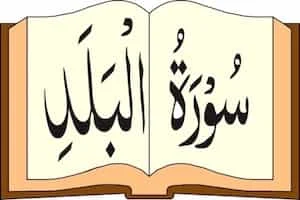 سُوْرَةُ الْبَلَدِ